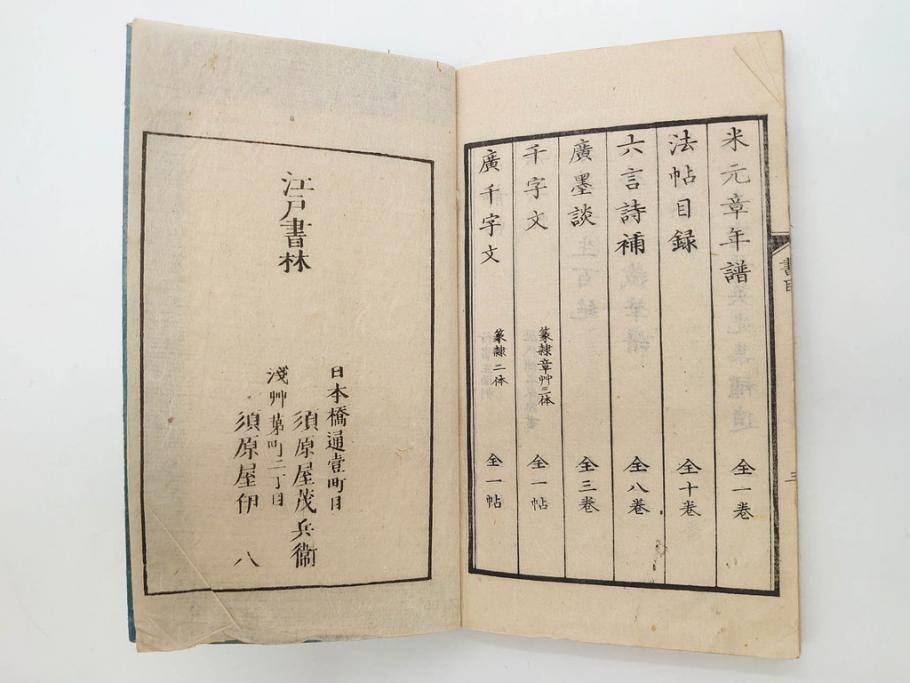 米元章年譜 全一巻
法帖目録 全十巻
六言詩補 全八巻
廣墨談 全三巻
千字文 篆隷章艸三体 全一帖
廣千字文 篆隷二体 全一帖
書目
三
江戸書林
日本橋通壹町目
須原屋茂兵衞
淺艸茅町二丁目
須原屋伊八